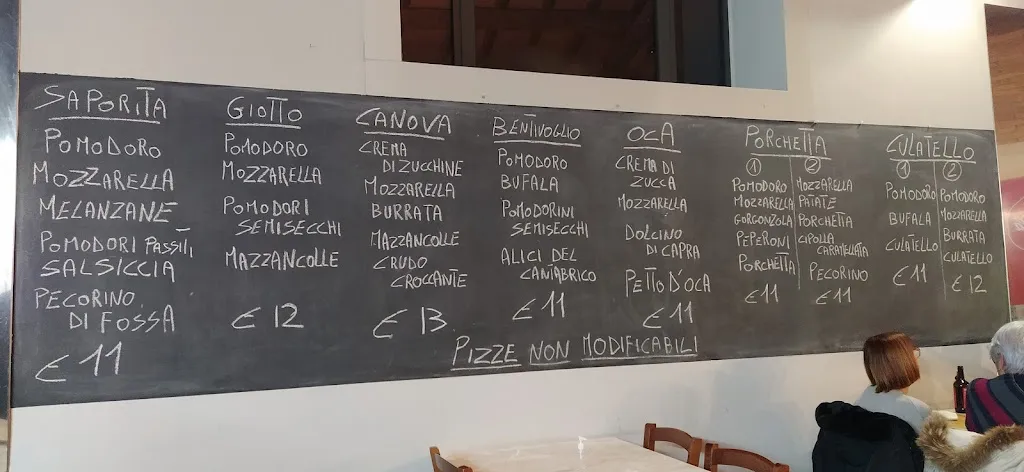 SAPORITA
POMODORO
MOZZARELLA
MELANZANE
POMODORI PASSITI,
SALSICCIA
PECORINO
DI FOSSA
€ 11
GIOTTO
POMODORO
MOZZARELLA
POMODORI
SEMISECCHI
MAZZANCOLLE
€ 12
CANOVA
CREMA
DI ZUCCHINE
MOZZARELLA
BURRATA
MAZZANCOLLE
CRUDO
CROCCANTE
€ 13
BENTIVOGLIO
POMODORO
BUFALA
POMODORINI
SEMISECCHI
ALICI DEL
CANTABRICO
€ 11
OCA
CREMA DI
ZUCCA
MOZZARELLA
DOLCINO
DI CAPRA
PETTO D'OCA
€ 11
PORCHETTA
1
POMODORO
MOZZARELLA
GORGONZOLA
PEPERONI
PORCHETTA
€ 11
2
MOZZARELLA
PATATE
PORCHETTA
CIPOLLA
CARAMELLATA
PECORINO
€ 11
CULATELLO
1
POMODORO
BUFALA
CULATELLO
€ 11
2
POMODORO
MOZZARELLA
BURRATA
CULATELLO
€ 12
PIZZE NON MODIFICABILI